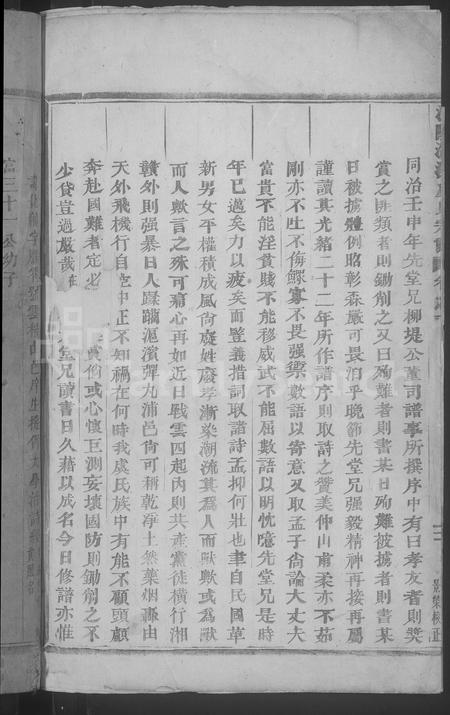 同治壬申年先堂兄柳堤公董司譜事所撰序中有曰孝友者則獎
賞之匪類者則鋤削之又曰殉難者則書某日殉難被擄者則書某
日被擄體例昭彰森嚴可畏洎乎晚節先堂兄强毅精神再接再厲
謹讀其光緒二十二年所作譜序則取詩之贊美仲山甫柔亦不茹
剛亦不吐不侮鰥寡不畏强禦數語以寄意又取孟子尙論大丈夫
富貴不能淫貧賤不能移威武不能屈數語以明忱噫先堂兄是時
年已邁矣力以疲矣而豎義措詞取諸詩孟抑何壯也聿自民國草
新男女平權積成風尙廢姓廢孝漸染潮流其爲人而獸歟或爲獸
而人歟言之殊可痛心再如近日戰雲四起內則共產黨徒橫行湘
贛外則强暴日人蹂躪滬濱彈丸浦邑尙可稱乾淨土然藥烟轟由
天外飛機行自空中正不知禍在何時我虞氏族中有能不顧頭顱
奔赴國難者定必 賞倘或心懷叵測妄壞國防則鋤削之不
少貸豈過嚴哉 堂兄讀書日久藉以成名今日修譜亦惟
景榮校正